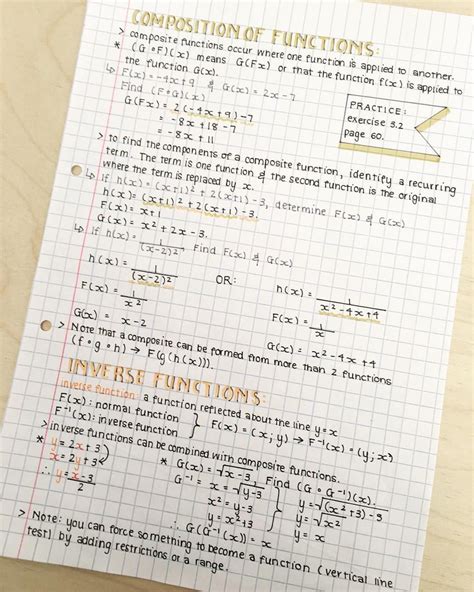 COMPOSITION OF FUNCTIONS:
> composite functions occur where one function is applied to another.
* (G∘F)(x) means G(Fx) or that the function f(x) is applied to
the function G(x).
↳ F(x) = -4x+9 & G(x) = 2x-7
Find (F∘G)(x)
G(Fx) = 2(-4x+9)-7
= -8x+18-7
= -8x+11
PRACTICE:
exercise 3.2
page 60.
> to find the components of a composite function, identify a recurring
term. The term is one function & the second function is the original
where the term is replaced by x.
↳ If h(x) = (x+1)² + 2(x+1)-3, determine F(x) & G(x)
h(x) = (x+1)² + 2(x+1)-3.
F(x) = x+1
G(x) = x² + 2x - 3.
↳ If h(x) = 1/(x-2)², Find F(x) & G(x)
h(x) = 1/(x-2)²
F(x) = 1/x²
G(x) = x-2
OR:
h(x) = 1/x²-4x+4
F(x) = 1/x
G(x) = x²-4x+4
> Note that a composite can be formed from more than 2 functions
(f∘g∘h) → F(g(h(x))).
INVERSE FUNCTIONS:
inverse function: a function reflected about the line y=x
F(x): normal function
F⁻¹(x): inverse function
} F(x) = (x;y) → F⁻¹(x) = (y;x)
> inverse functions can be combined with composite functions.
* y = 2x+3
x = 2y+3
∴ y = x-3/2
* G(x) = √x-3, Find (G∘G⁻¹)(x).
G⁻¹ = x = √y-3
x² = y-3
y = x²+3
y = √(x²+3)-3
y = √x²
y = x
∴ G(G⁻¹(x)) = x
> Note: you can force something to become a function (vertical line
test) by adding restrictions or a range.